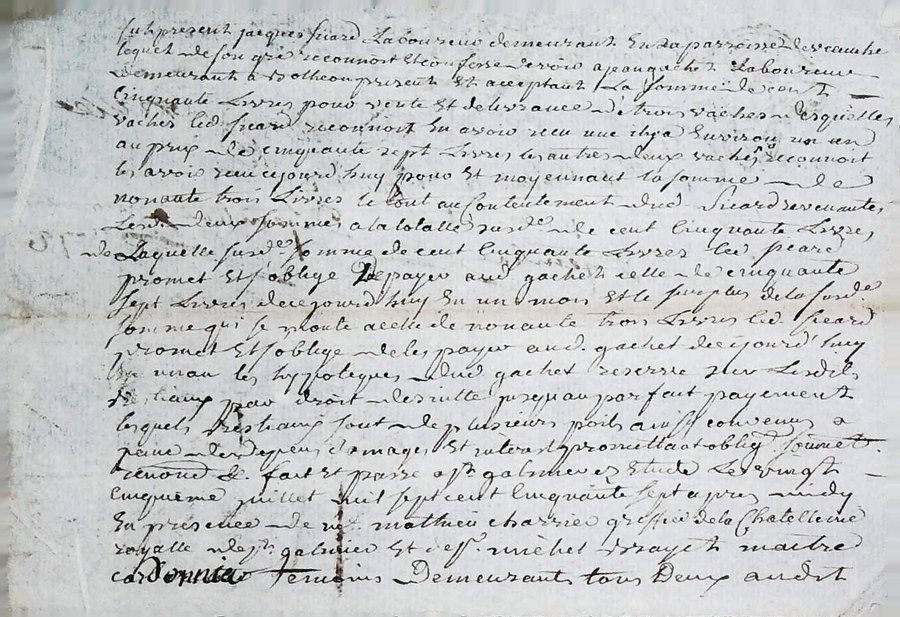 fut present jacques sicard Laboureur demeurant En La parroisse de
lequel de son gré reconnoit Et confesse devoir a jean gachet Laboureur
Demeurant a present Et acceptant La somme de cent
Cinquante Livres pour vente Et delivrance de trois vaches desquelles
vaches led. sicard reconnoit En avoir recu une il y a Environ un an
au prix de cinquante sept Livres les autres deux vaches reconnoit
les avoir recu cejourd'huy pour Et moyennant la somme de
nonante trois Livres le tout au Contentement dud. Sicard revenantes
Lesd. deux sommes a la totalle susde de cent Cinquante Livres
de Laquelle susde somme de cent Cinquante Livres led sicard
promet Et s'oblige De payer aud gachet celle de cinquante
sept Livres de cejourd'huy En un mois Et le surplus de la susde
somme qui se monte a celle de nonante trois Livres led. sicard
promet Et s'oblige de les payer aud. gachet de cejourd'huy
En un an les hypoteques dud gachet reservé sur Lesdits
Bestiaux par droit de suitte jusqu'au parfait payement
lesquels Bestiaux sont de plusieurs poils ainsy convenus a
peine de depens domages Et interest promettant oblig. soumet.
renond &. fait Et passé a st galmier Etude Le vingt
Cinquieme juillet mil sept cent Cinquante sept apres midy
En presence de me. mathieu charrier greffier de la Chatellenie
royalle de st. galmier Et de sr. michel maitre
cordonnier Temoins Demeurants tous Deux audit